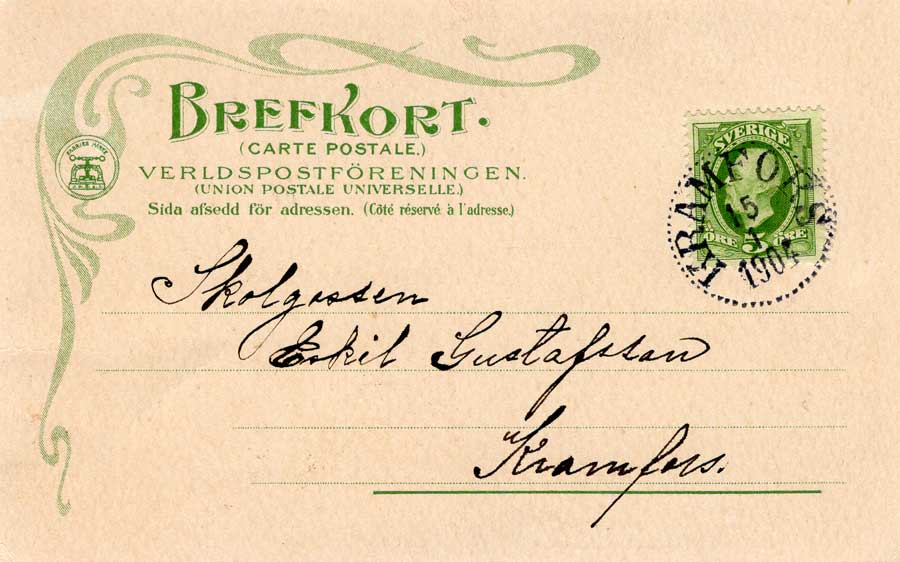 BREFKORT.
(CARTE POSTALE.)
VERLDSPOSTFÖRENINGEN.
(UNION POSTALE UNIVERSELLE.)
Sida afsedd för adressen. (Côté réservé à l'adresse.)
SVERIGE
ÖRE 5 ÖRE
KRAMFORS
15
1
1904
Skolgossen
Eskil Gustafsson
Kramfors.